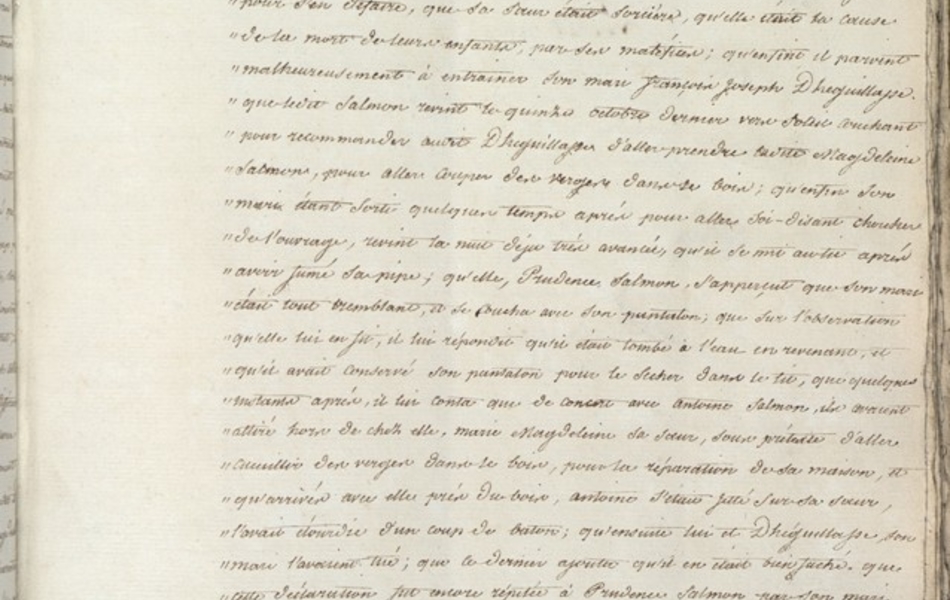 "pour s'en défaire, que sa sœur était sorcière, qu'elle était la cause
"de la mort de leurs enfants, par ses maléfices; qu'enfin il parvint
"malheureusement à entrainer son mari françois Joseph Dheguillasse.
"que ledit Salmon revint le quinze octobre dernier vers soleil couchant
"pour recommander audit Dheguillasse d'aller prendre ladite Magdeleine
"Salmon, pour aller couper des verges dans le bois; qu'enfin son
"mari étant sorti quelques temps après pour aller soi-disant chercher
"de l'ouvrage, revint la nuit déja très avancée, qu'il se mit au lit après
"avoir fumé sa pipe; qu'elle, Prudence Salmon, s'apperçut que son mari
"était tout tremblant, et se coucha avec son pantalon; que sur l'observation
"qu'elle lui en fit, il lui répondit qu'il était tombé à l'eau en revenant, et
"qu'il avait conservé son pantalon pour le sécher dans le lit, que quelques
"instants après, il lui conta que de concert avec Antoine Salmon, ils avaient
"attiré hors de chez elle, marie Magdeleine sa sœur, sous prétexte d'aller
"cueillir des verges dans le bois, pour la réparation de sa maison, et
"qu'arrivés avec elle près du bois, antoine s'était jetté sur sa sœur,
"l'avait étourdie d'un coup de baton; qu'ensuite lui et Dheguillasse, son
"mari l'avaient tué; que ce dernier ajouta qu'il en était bien faché. que
"cette déclaration fut encore répétée à Prudence Salmon par son mari